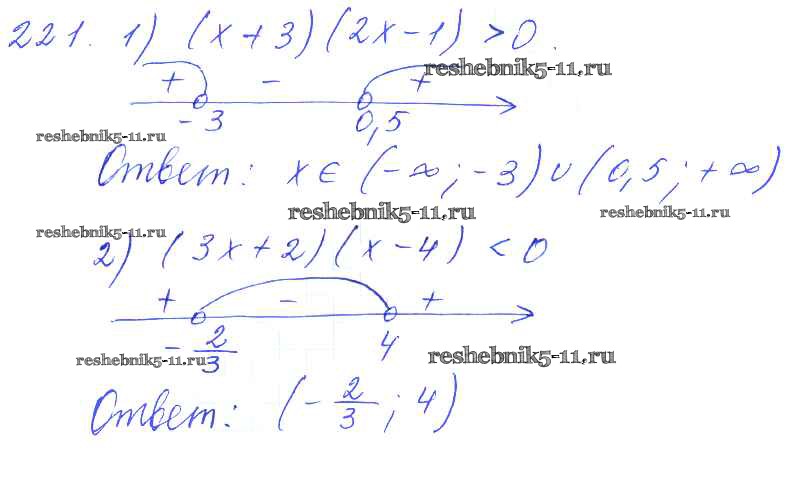 221. 1) (x+3)(2x-1)>0.
reshebnik5-11.ru
+ - +
-3 0,5
reshebnik5-11.ru
Ответ: x ∈ (-∞; -3) ∪ (0,5; +∞)
reshebnik5-11.ru reshebnik5-11.ru
reshebnik5-11.ru
2) (3x+2)(x-4) < 0
+ - +
-2/3 4
reshebnik5-11.ru reshebnik5-11.ru
Ответ: (-2/3; 4)